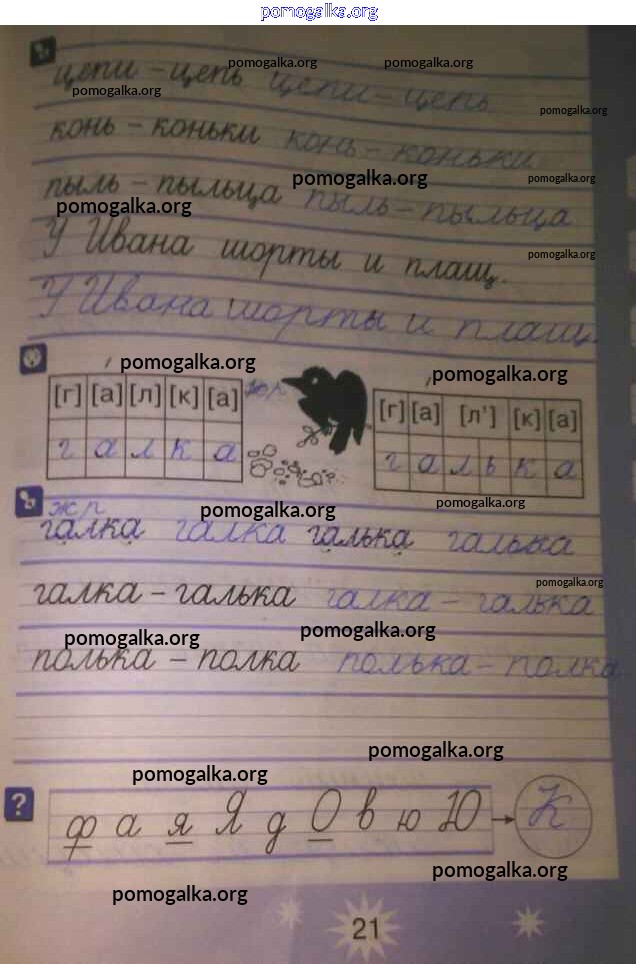 pomogalka.org
цепи – цепь цепи – цепь
pomogalka.org pomogalka.org
pomogalka.org
pomogalka.org
конь – коньки конь – коньки
pomogalka.org pomogalka.org
пыль – пыльца пыль – пыльца
pomogalka.org
У Ивана шорты и плащ.
pomogalka.org
У Ивана шорты и плащ.
pomogalka.org
pomogalka.org
[г] [а] [л] [к] [а] жр [г] [а] [л'] [к] [а]
г а л к а г а л ь к а
жр pomogalka.org pomogalka.org
галка галка галька галька
pomogalka.org
галка – галька галка – галька
pomogalka.org pomogalka.org
полька – полка полька – полка
pomogalka.org
pomogalka.org
? ф а я Я д О в ю Ю К
pomogalka.org
pomogalka.org
21